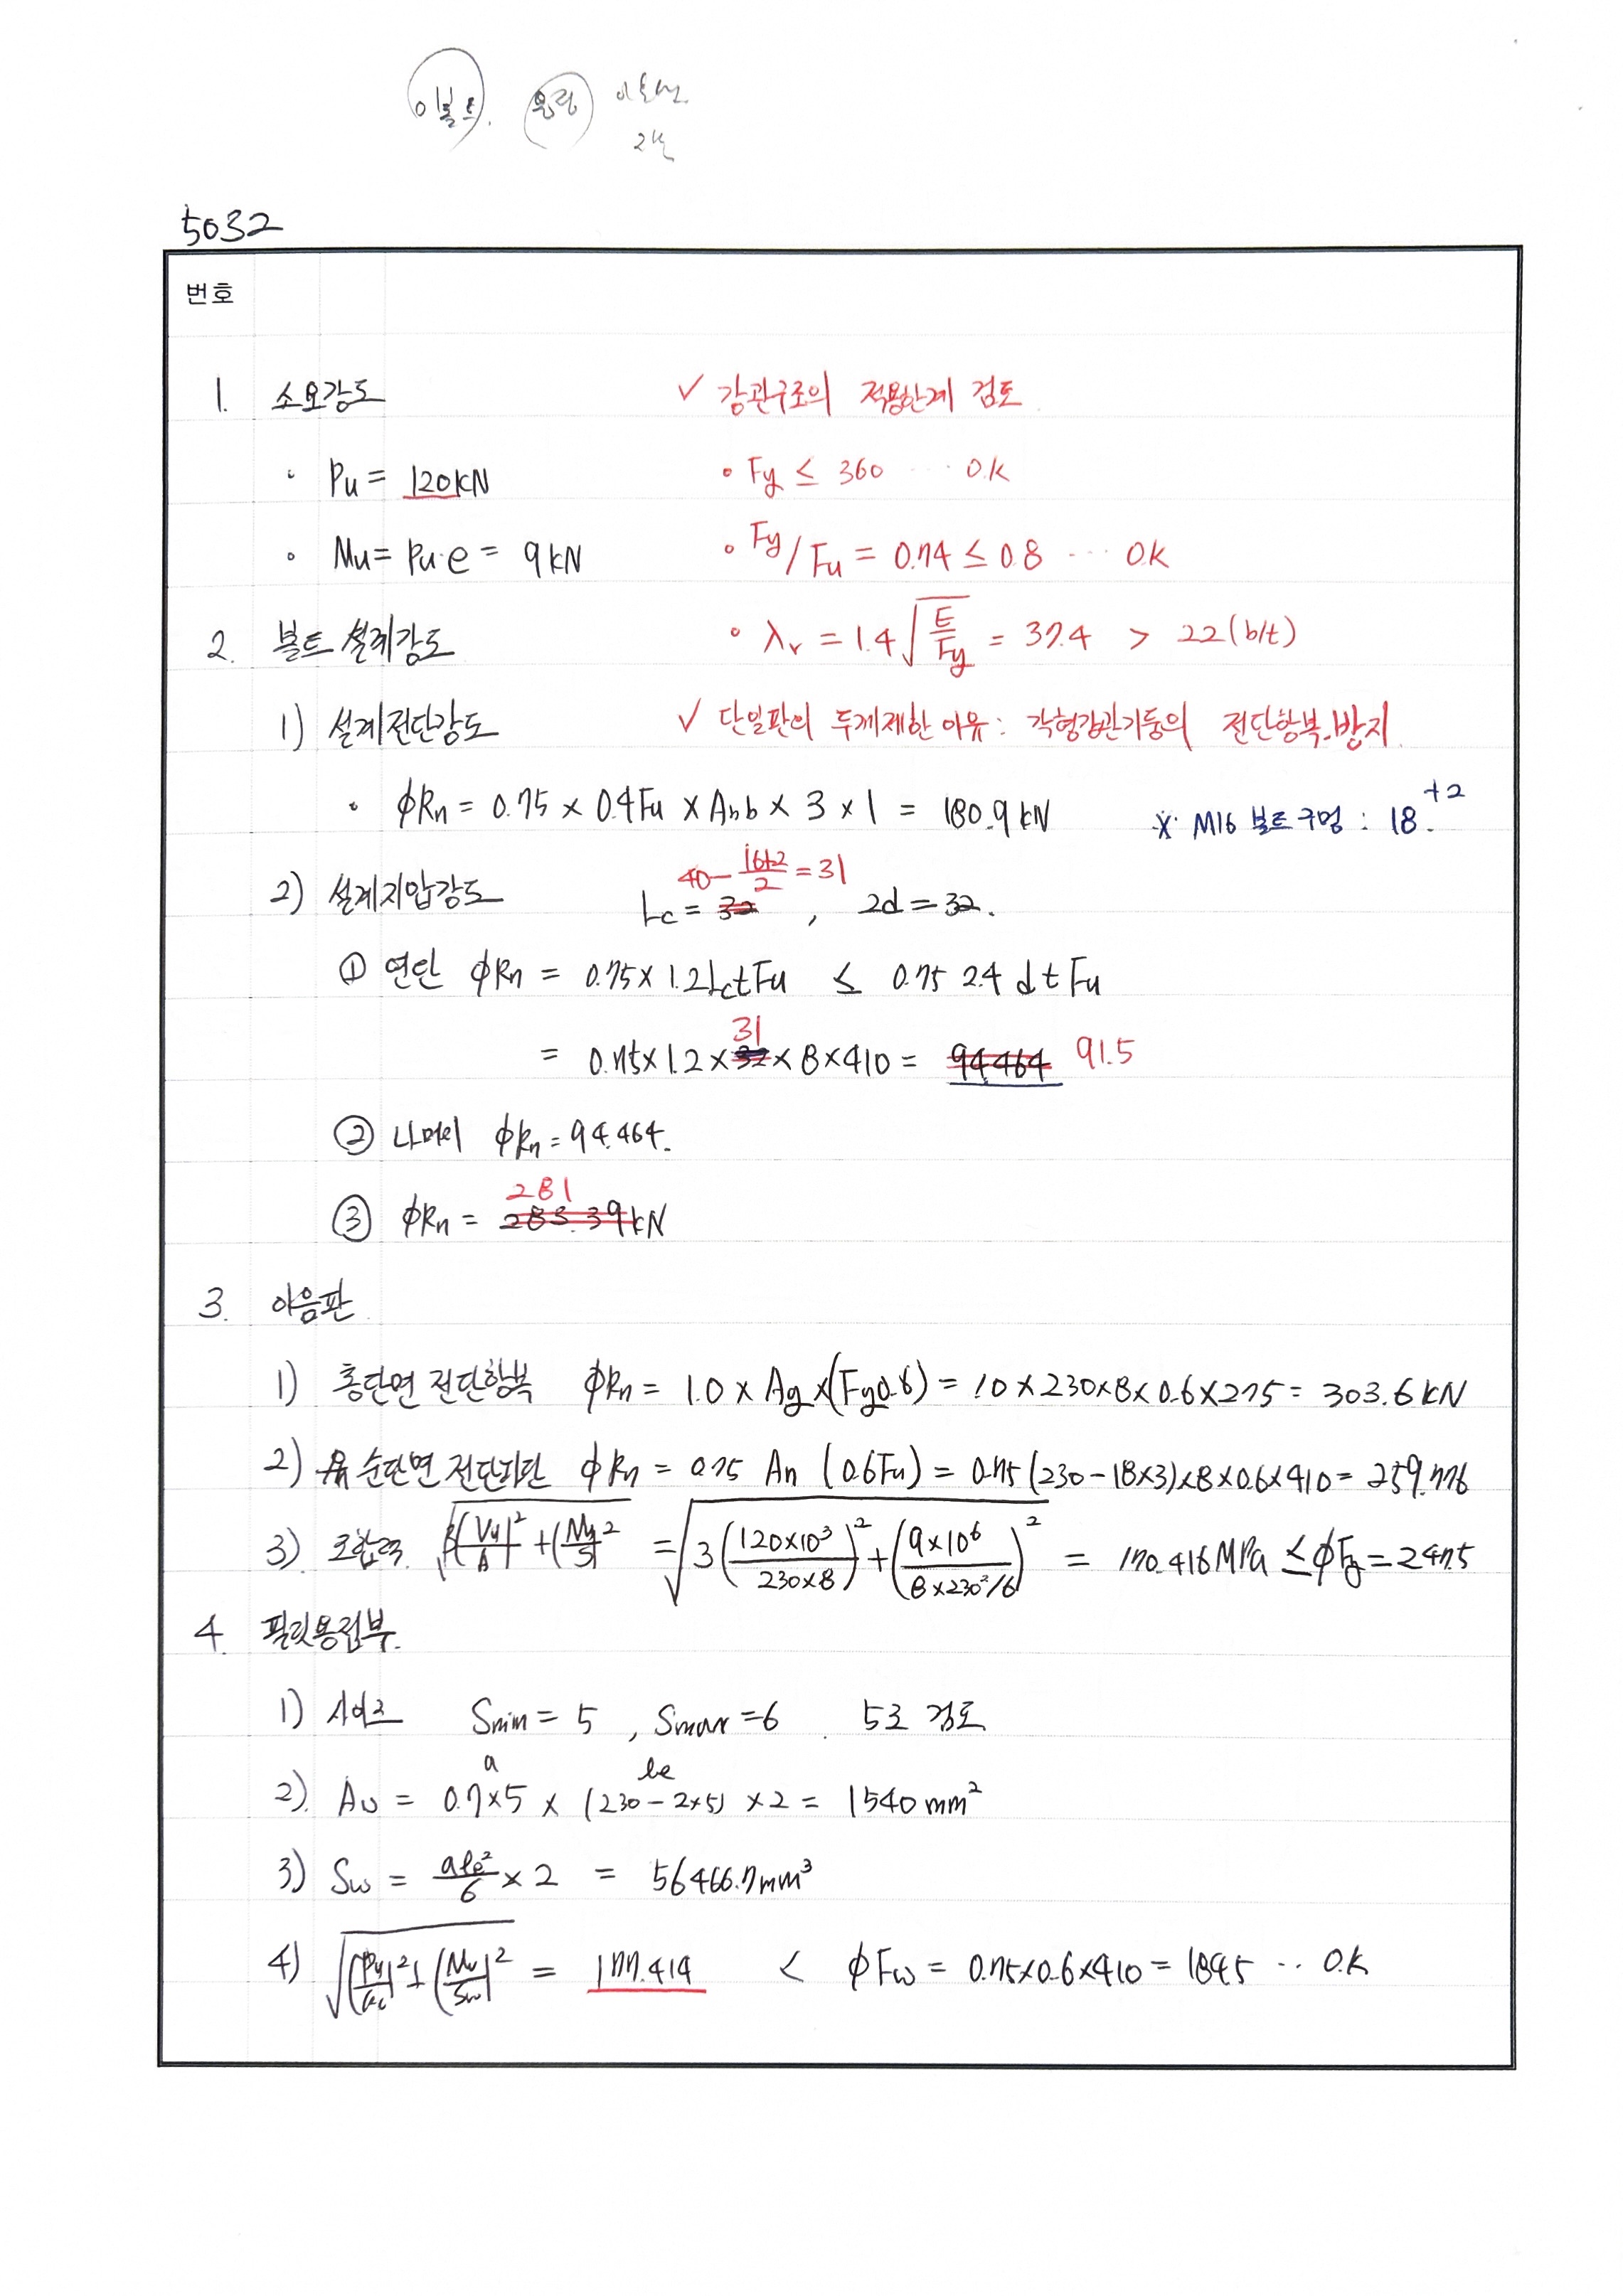 이볼트. 용접 이음선
5032
번호
1. 소요강도 ✓ 강관구조의 적용한계 검토
• Pu = 120kN • Fy ≤ 360 ··· O.K
• Mu = Pu·e = 9kN • Fy/Fu = 0.74 ≤ 0.8 ··· O.K
2. 볼트 설계강도 • λr = 1.4√(E/Fy) = 37.4 > 22 (b/t)
1) 설계전단강도 ✓ 단일판의 두께제한 이유: 각형강관기둥의 전단항복 방지
• ϕRn = 0.75 × 0.4Fu × Anb × 3 × 1 = 180.9 kN ※ M16 볼트구멍 : 18 +2
40 - (16+2)/2 = 31
2) 설계지압강도 Lc = 32 , 2d = 32.
① 연단 ϕRn = 0.75 × 1.2LctFu ≤ 0.75 2.4 dtFu
31
= 0.75 × 1.2 × 32 × 8 × 410 = 94.464 91.5
② 나머지 ϕRn = 94.464.
281
③ ϕRn = 283.39kN
3. 이음판
1) 총단면 전단항복 ϕRn = 1.0 × Ag × (Fy0.6) = 1.0 × 230 × 8 × 0.6 × 275 = 303.6 kN
2) 순단면 전단파단 ϕRn = 0.75 An (0.6Fu) = 0.75 (230 - 18×3) × 8 × 0.6 × 410 = 259.776
3) 조합력 √(3(Vu/A)² + (Mu/S)²) = √(3(120×10³/(230×8))² + (9×10⁶/(8×230²/6))²) = 170.416 MPa ≤ ϕFy = 247.5
4. 필릿용접부.
1) 사이즈 Smin = 5 , Smax = 6 . 5로 검토
a le
2) Aw = 0.7×5 × (230 - 2×5) × 2 = 1540 mm²
3) Sw = (a le²/6) × 2 = 56466.7mm³
4) √((Pu/Aw)² + (Mu/Sw)²) = 177.414 < ϕFw = 0.75×0.6×410 = 184.5 ·· O.K